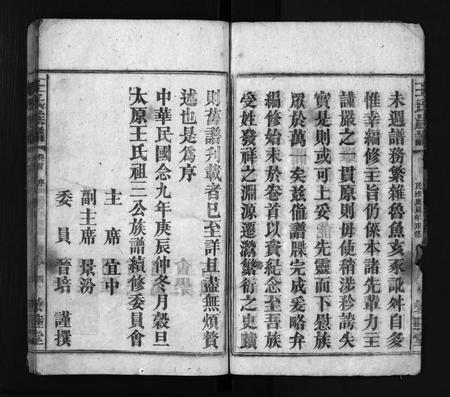 未週譜務繁雜魯魚亥豕訛舛自多
惟幸編修主旨仍係本諸先輩力主
謹嚴之一貫原則毋使稍涉矜誇失
實是則或可上妥先靈而下慰族
眾於萬一矣茲值譜牒完成爰略弁
編修始末於卷首以資紀念至吾族
受姓發祥之淵源遷徙繁衍之史蹟
則舊譜刋載者巳至詳且盡無煩贅
述也是爲序
中華民國念九年庚辰仲冬月穀旦
太原王氏祖三公族譜續修委員會
主席宜中
副主席景汾
委員晉培謹撰
王氏族譜
序
四